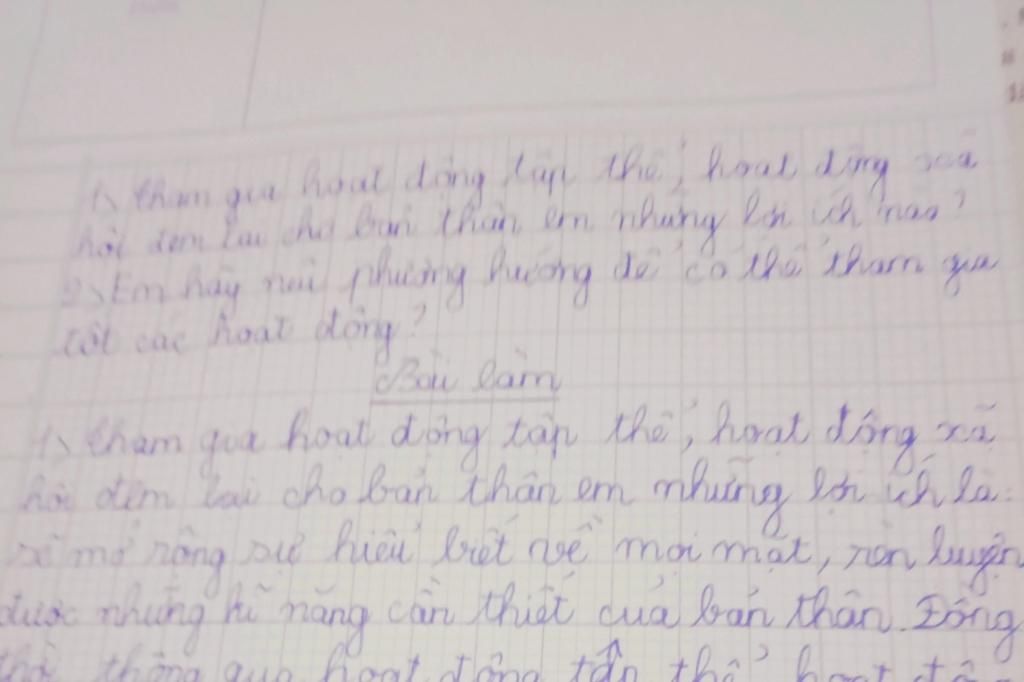 1, tham gia hoạt động tập thể, hoạt động xã
hội đem lại cho bản thân em những lợi ích nào?
2, Em hãy nêu phương hướng để có thể tham gia
tốt các hoạt động?
Bài làm
1, tham gia hoạt động tập thể, hoạt động xã
hội đem lại cho bản thân em những lợi ích là:
sẽ mở rộng sự hiểu biết về mọi mặt, rèn luyện
được những kĩ năng cần thiết của bản thân. Đồng
thời thông qua hoạt động tập thể, hoạt